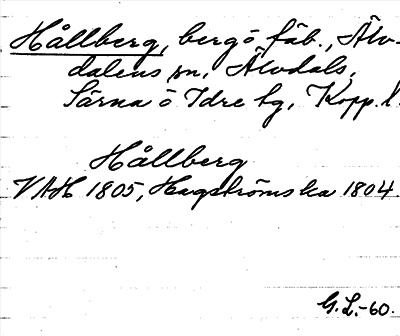 Hållberg, berg ö fäb., Älv-
dalens sn, Älvdals,
Särna ö Idre tg, Kopp. l.
Hållberg
VAH 1805, Hagströms ka 1804.
G.L.-60.